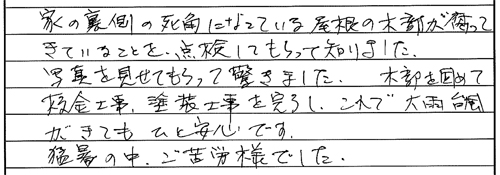 家の裏側の死角になっている屋根の木部が腐って
きていることを、点検してもらって知りました。
写真を見せてもらって驚きました。 木部を固めて
板金工事、塗装工事を完了し、これで大雨台風
がきてもひと安心です。
猛暑の中、ご苦労様でした。